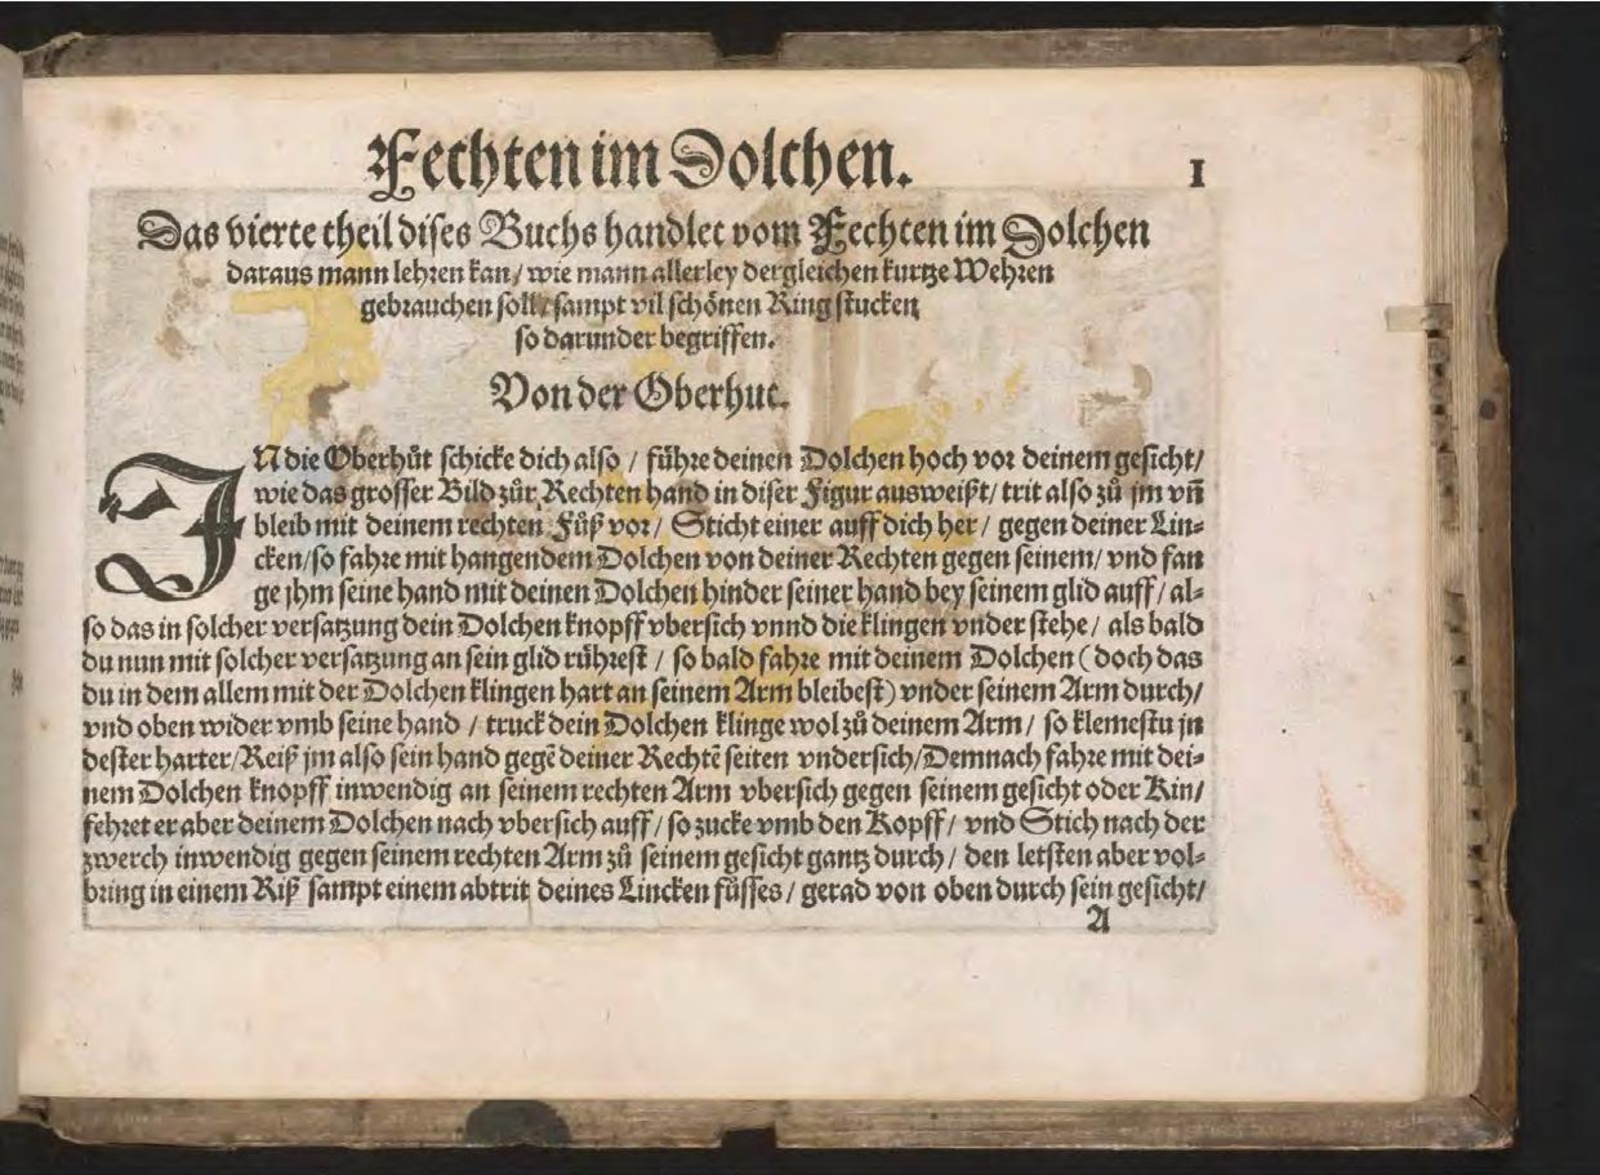 Fechten im Dolchen.
I
Das vierte theil dises Buchs handlet vom Fechten im Dolchen
daraus mann lehren kan / wie mann allerley dergleichen kurtze Wehren
gebrauchen soll / sampt vil schönen Ring stucken,
so darunder begriffen.
Von der Oberhut.
IN die Oberhůt schicke dich also / führe deinen Dolchen hoch vor deinem gesicht /
wie das grosser Bild zůr Rechten hand in diser Figur ausweißt / trit also zů jm vñ
bleib mit deinem rechten Fůß vor / Sticht einer auff dich her / gegen deiner Lin-
cken / so fahre mit hangendem Dolchen von deiner Rechten gegen seinem / vnd fan
ge jhm seine hand mit deinen Dolchen hinder seiner hand bey seinem glid auff / al-
so das in solcher versatzung dein Dolchen knopff vbersich vnnd die klingen vnder stehe / als bald
du nun mit solcher versatzung an sein glid rührest / so bald fahre mit deinem Dolchen (doch das
du in dem allem mit der Dolchen klingen hart an seinem Arm bleibest) vnder seinem Arm durch /
vnd oben wider vmb seine hand / truck dein Dolchen klinge wol zů deinem Arm / so klemestu jn
dester harter / Reiß jm also sein hand gegē deiner Rechtē seiten vndersich / Demnach fahre mit dei-
nem Dolchen knopff inwendig an seinem rechten Arm vbersich gegen seinem gesicht oder Kin /
fehret er aber deinem Dolchen nach vbersich auff / so zucke vmb den Kopff / vnd Stich nach der
zwerch inwendig gegen seinem rechten Arm zů seinem gesicht gantz durch / den letsten aber vol-
bring in einem Riß sampt einem abtrit deines Lincken fůsses / gerad von oben durch sein gesicht /
A